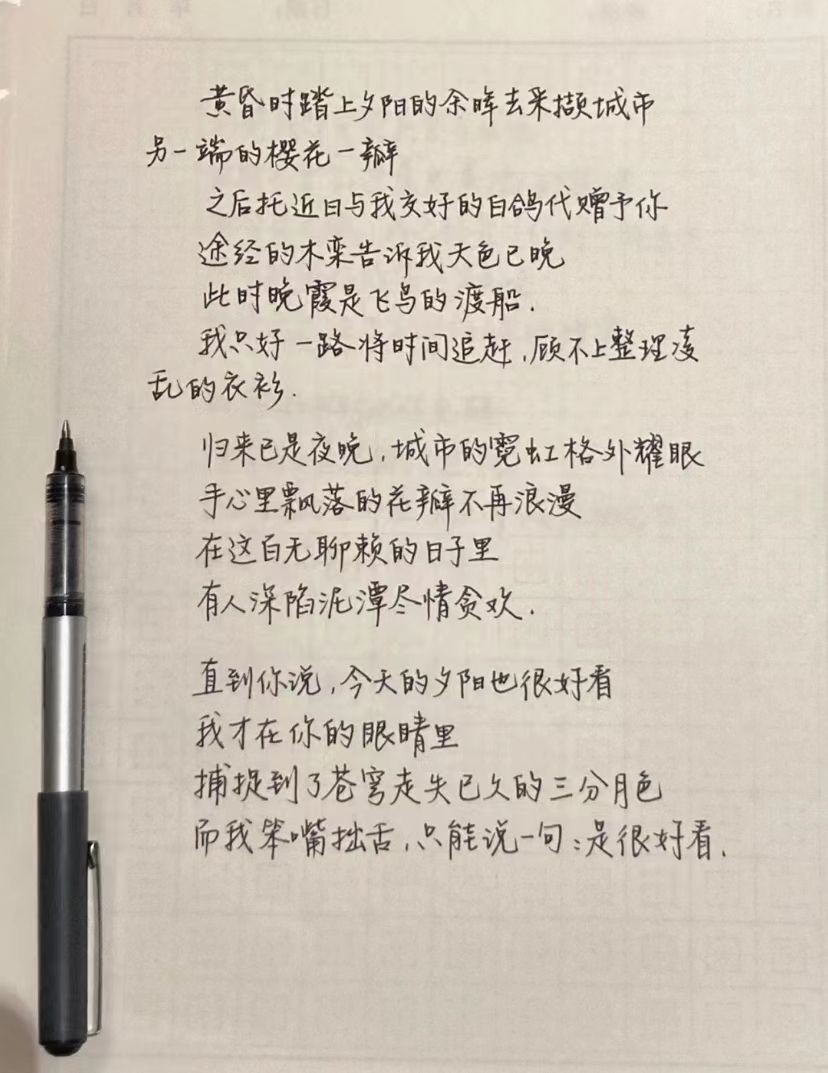 黄昏时踏上夕阳的余晖去采撷城市
另一端的樱花一瓣
之后托近日与我交好的白鸽代赠予你
途经的木栾告诉我天色已晚
此时晚霞是飞鸟的渡船.
我只好一路将时间追赶,顾不上整理凌
乱的衣衫.
归来已是夜晚,城市的霓虹格外耀眼
手心里飘落的花瓣不再浪漫
在这百无聊赖的日子里
有人深陷泥潭尽情贪欢.
直到你说,今天的夕阳也很好看
我才在你的眼睛里
捕捉到了苍穹走失已久的三分月色
而我笨嘴拙舌,只能说一句:是很好看.